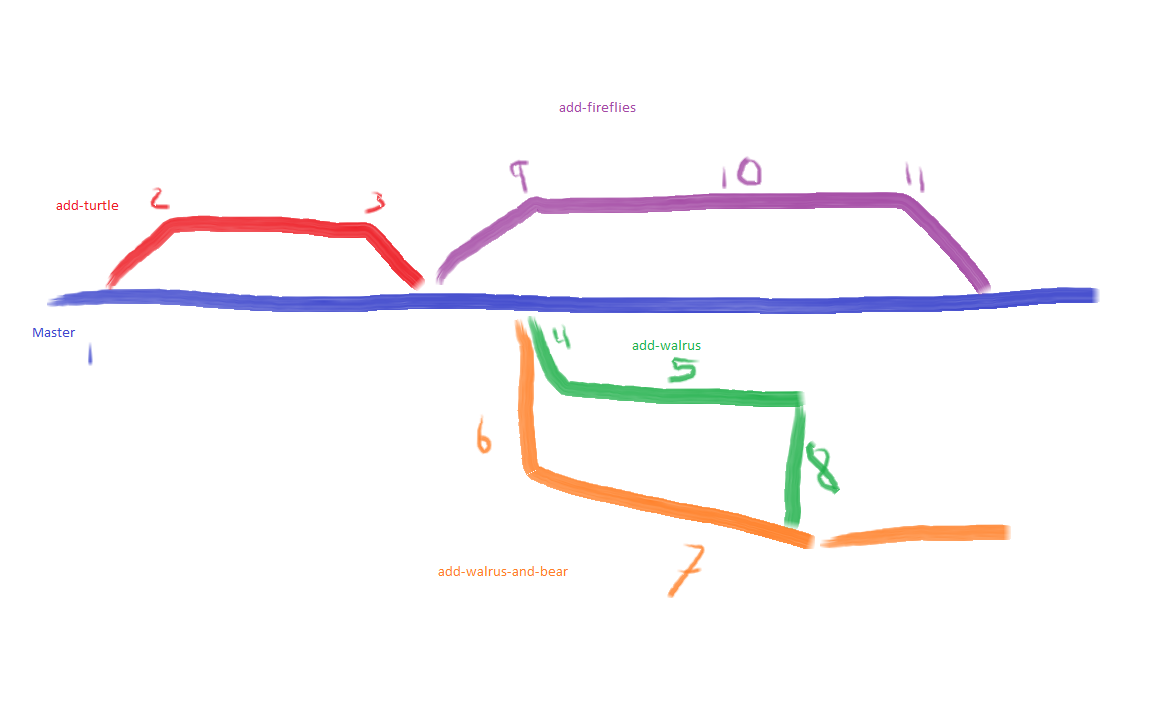 add-fireflies
9 10 11
add-turtle 2 3
Master
1
4
add-walrus
5
6
8
add-walrus-and-bear
7